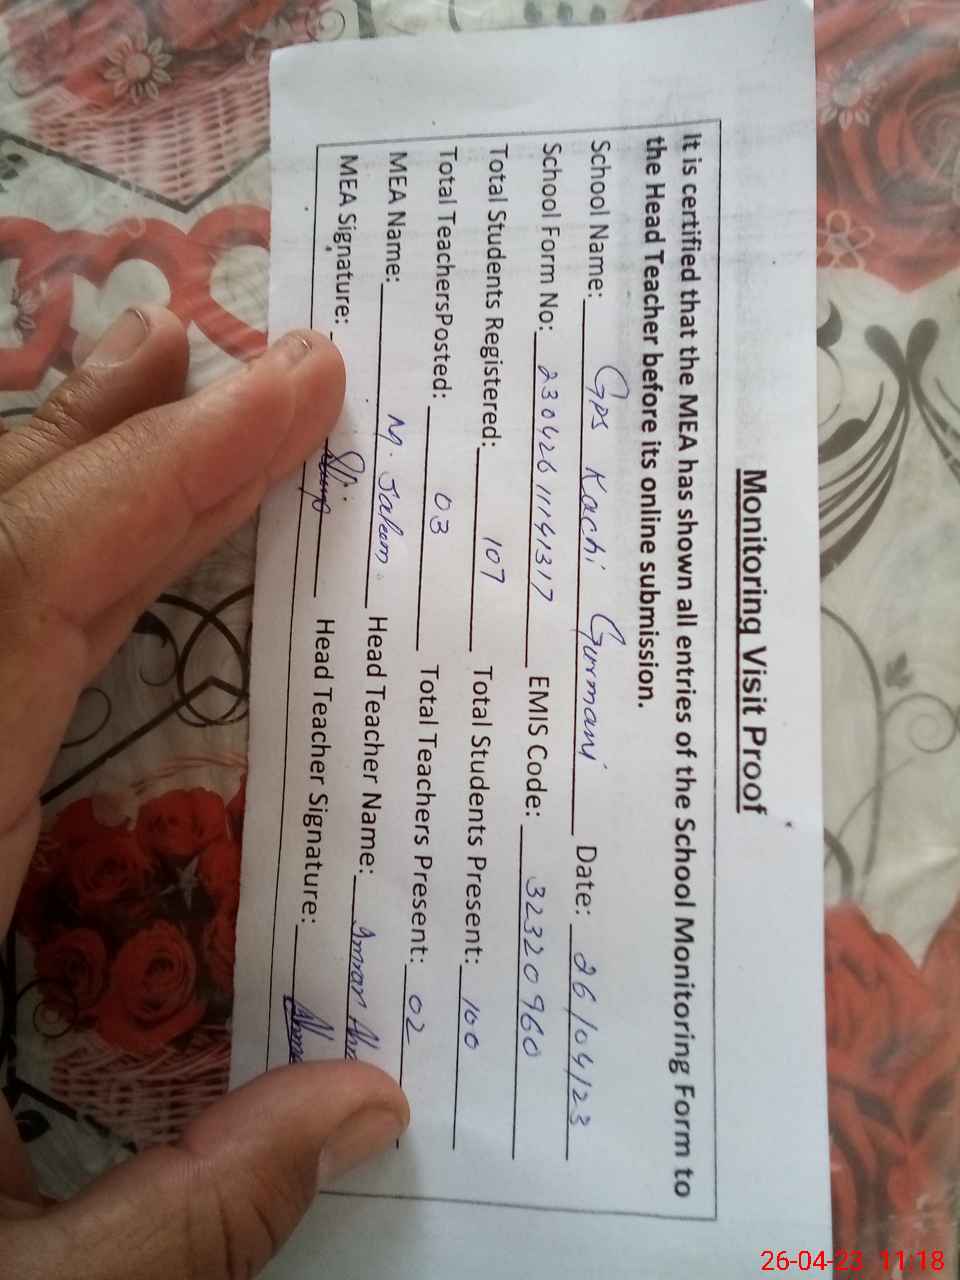 Monitoring Visit Proof
It is certified that the MEA has shown all entries of the School Monitoring Form to
the Head Teacher before its online submission.
School Name: GPS Kachi Gurmani Date: 26/04/23
School Form No: 23042611141317 EMIS Code: 32320960
Total Students Registered: 107 Total Students Present: 100
Total TeachersPosted: 03 Total Teachers Present: 02
MEA Name: M. Saleem Head Teacher Name: Imran
MEA Signature: Head Teacher Signature:
26-04-23 11:18